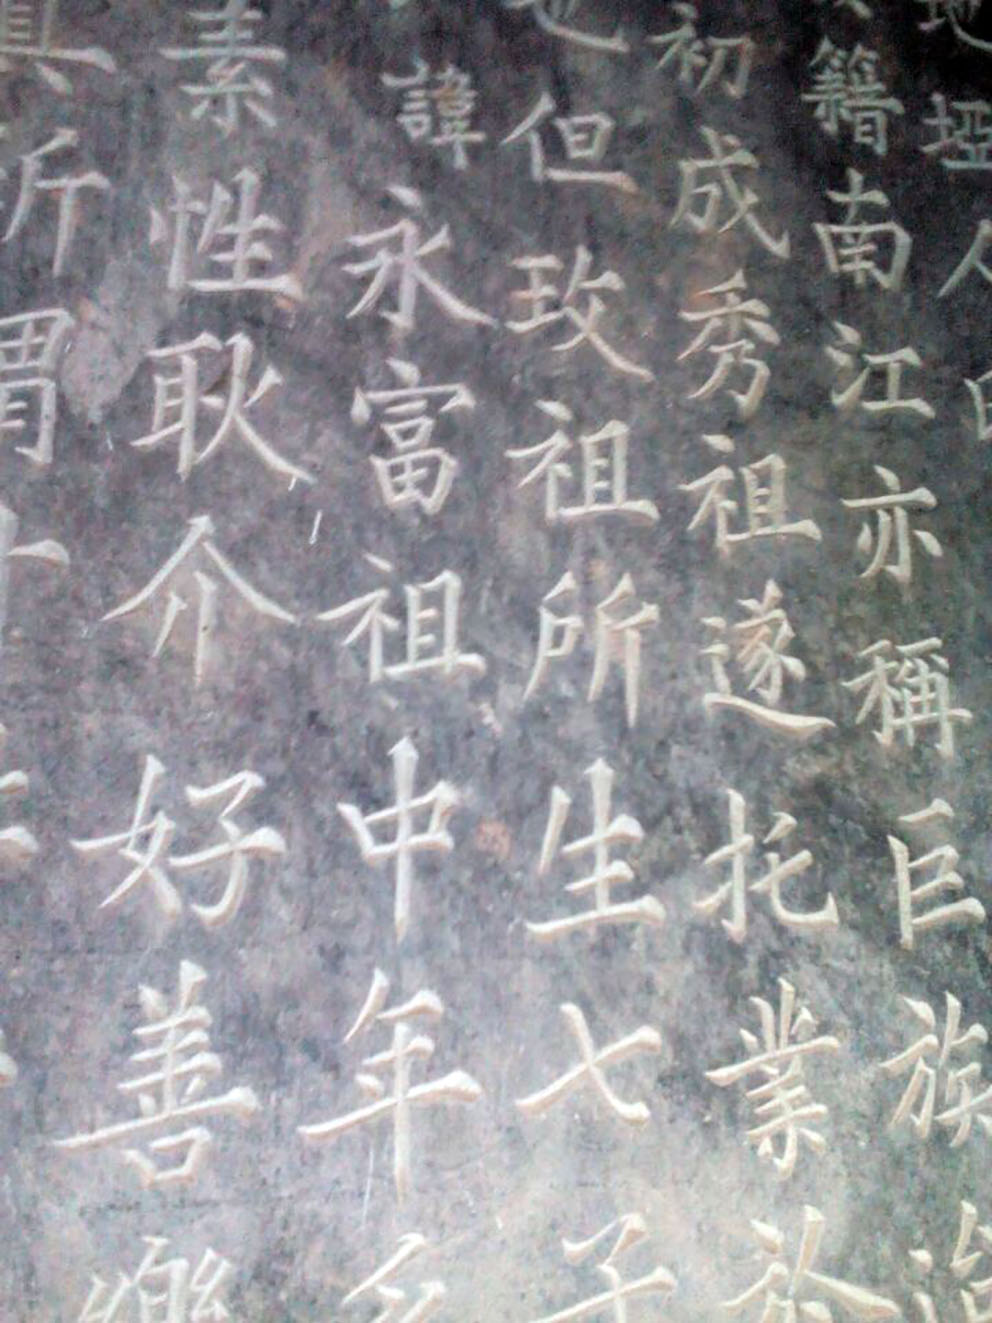 地埡人
籍南江亦稱巨族
初成秀祖遂托業於
也但玫祖所生七子
諱永富祖中年
素性耿介好善樂
真所謂